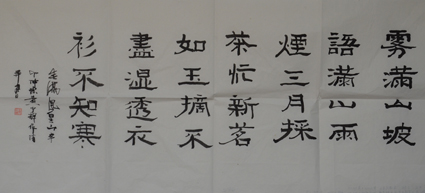 雾满山坡
語满山雨
煙三月採
茶忙新茗
如玉摘不
盡湿透衣
衫不知寒